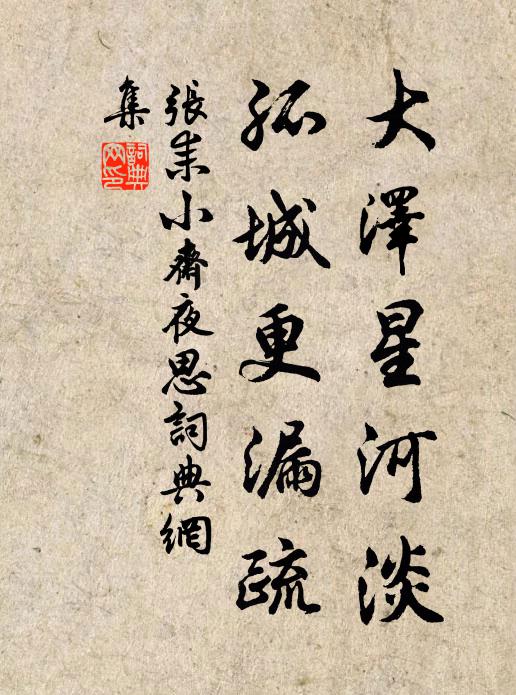 大澤星河淡
孤城更漏疏
張耒小齋夜思詞典網
集
詞典網印